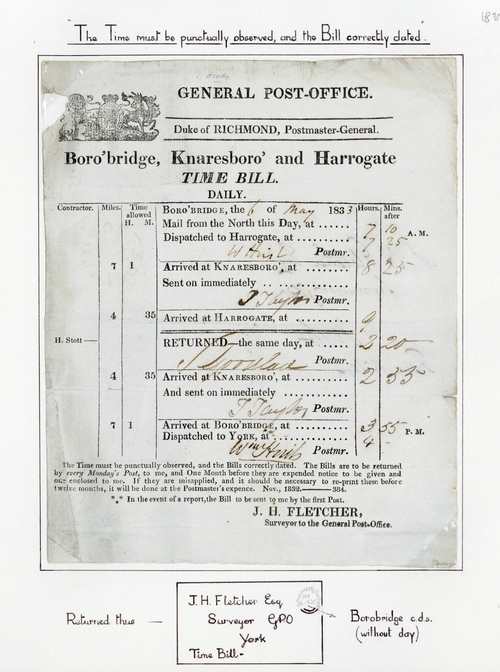 183
The Time must be punctually observed, and the Bill correctly dated.
GENERAL POST-OFFICE.
Duke of RICHMOND, Postmaster-General.
Boro'bridge, Knaresboro' and Harrogate
TIME BILL.
DAILY.
Contractor. Miles. Time allowed H. M. BORO'BRIDGE, the 6 of May 1833 Hours. Mins. after
Mail from the North this Day, at ...... 7 10 A. M.
Dispatched to Harrogate, at .......... 7 25
W Hirst Postmr.
7 1 Arrived at KNARESBORO', at ........ 8 25
Sent on immediately .. ............
T Taylor Postmr.
4 35 Arrived at HARROGATE, at .......... 9
H. Stott — RETURNED—the same day, at ...... 2 20
Postmr.
4 35 Arrived at KNARESBORO', at ........ 2 55
And sent on immediately ............
T Taylor Postmr.
7 1 Arrived at BORO'BRIDGE, at ........ 3 55 P. M.
Dispatched to YORK, at ............ 4 -
Wm Hirst Postmr.
The Time must be punctually observed, and the Bills correctly dated. The Bills are to be returned
by every Monday's Post, to me, and One Month before they are expended notice to be given and
one enclosed to me. If they are misapplied, and it should be necessary to re-print them before
twelve months, it will be done at the Postmaster's expence. Nov., 1832.———384.
*** In the event of a report, the Bill to be sent to me by the first Post.
J. H. FLETCHER,
Surveyor to the General Post-Office.
Returned thus —
J.H. Fletcher Esq
Surveyor GPO
York
Time Bill-
Borobridge c.d.s.
(without day)